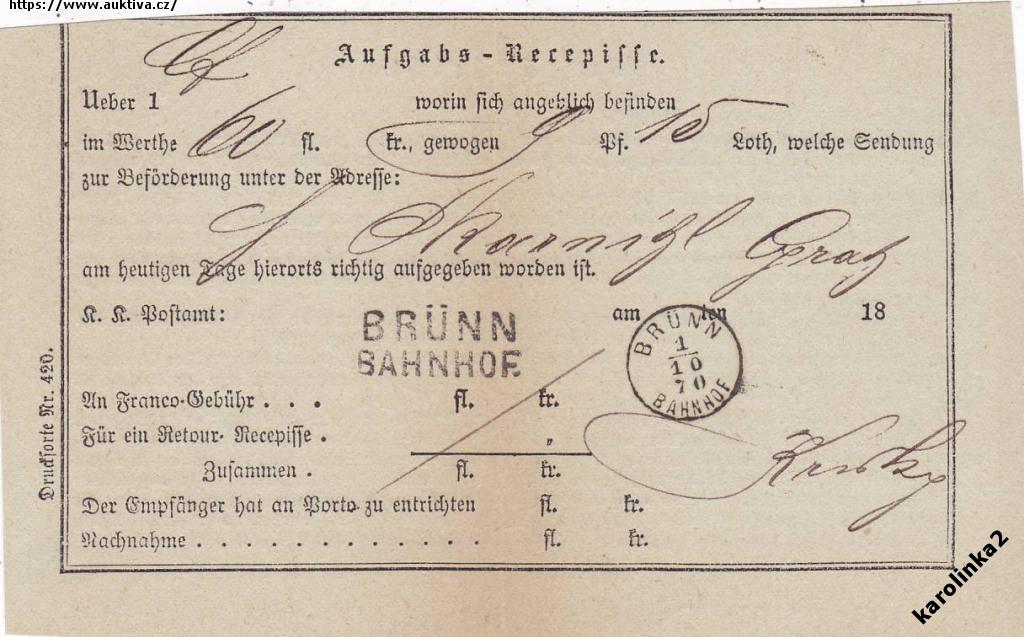 https://www.auktiva.cz/
Aufgabs-Recepisse.
Ueber 1 worin sich angeblich befinden
im Werthe 60 fl. kr., gewogen 9 Pf. 15 Loth, welche Sendung
zur Beförderung unter der Adresse:
Graz
am heutigen Tage hierorts richtig aufgegeben worden ist.
K. K. Postamt: BRÜNN BAHNHOF am ten 18
BRÜNN
1/10
70
BAHNHOF
An Franco-Gebühr . . . fl. kr.
Für ein Retour-Recepisse . "
Zusammen . fl. kr.
Der Empfänger hat an Porto zu entrichten fl. kr.
Nachnahme . . . . . . . . . . . . fl. kr.
Drucksorte Nr. 420.
karolinka2